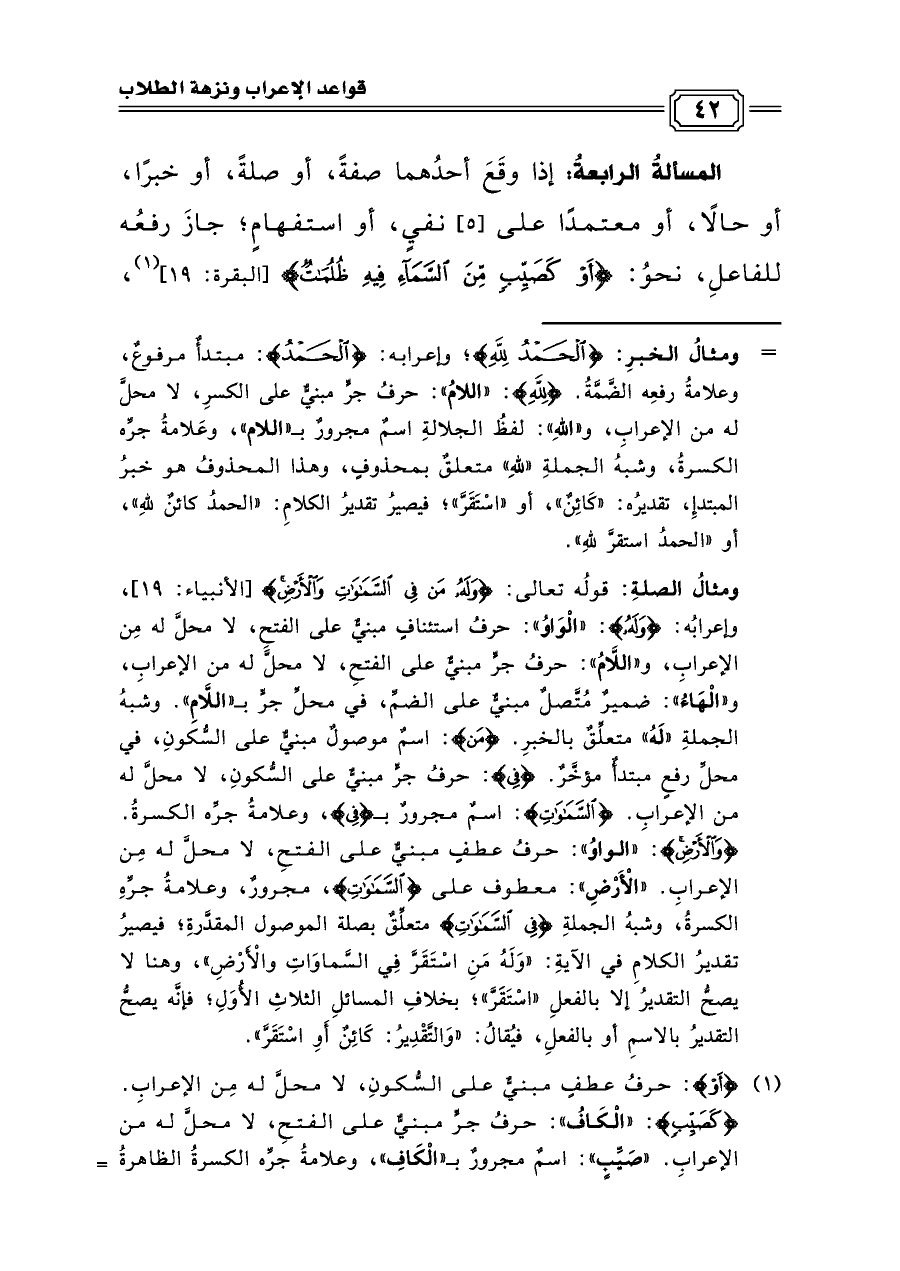 قواعد الإعراب ونزهة الطلاب
٤٢
المسألةُ الرابعةُ: إذا وقَعَ أحدُهما صفةً، أو صلةً، أو خبرًا،
أو حالًا، أو معتمدًا على [٥] نفيٍ، أو استفهامٍ؛ جازَ رفعُه
للفاعلِ، نحوُ: ﴿أَوْ كَصَيِّبٍ مِّنَ ٱلسَّمَآءِ فِيهِ ظُلُمَٰتٌ﴾ [البقرة: ١٩](١)،
= ومثالُ الخبرِ: ﴿ٱلْحَمْدُ لِلَّهِ﴾؛ وإعرابه: ﴿ٱلْحَمْدُ﴾: مبتدأٌ مرفوعٌ،
وعلامةُ رفعِه الضَّمَّةُ. ﴿لِلَّهِ﴾: «اللامُ»: حرفُ جرٍّ مبنيٌّ على الكسرِ، لا محلَّ
له من الإعرابِ، و«اللهِ»: لفظُ الجلالةِ اسمٌ مجرورٌ بـ«اللام»، وعَلامةُ جرِّه
الكسرةُ، وشبهُ الجملةِ «للهِ» متعلقٌ بمحذوفٍ، وهذا المحذوفُ هو خبرُ
المبتدإِ، تقديرُه: «كَائِنٌ»، أو «اسْتَقَرَّ»؛ فيصيرُ تقديرُ الكلامِ: «الحمدُ كائنٌ للهِ»،
أو «الحمدُ استقرَّ للهِ».
ومثالُ الصلةِ: قولُه تعالى: ﴿وَلَهُۥ مَن فِى ٱلسَّمَٰوَٰتِ وَٱلْأَرْضِۚ﴾ [الأنبياء: ١٩]،
وإعرابُه: ﴿وَلَهُۥ﴾: «الْوَاوُ»: حرفُ استئنافٍ مبنيٌّ على الفتحِ، لا محلَّ له مِن
الإعرابِ، و«اللَّامُ»: حرفُ جرٍّ مبنيٌّ على الفتحِ، لا محلَّ له من الإعرابِ،
و«الْهَاءُ»: ضميرٌ مُتَّصلٌ مبنيٌّ على الضمِّ، في محلِّ جرٍّ بـ«اللَّامِ». وشبهُ
الجملةِ «لَهُ» متعلِّقٌ بالخبرِ. ﴿مَن﴾: اسمٌ موصولٌ مبنيٌّ على السُّكونِ، في
محلِّ رفعٍ مبتدأٌ مؤخَّرٌ. ﴿فِى﴾: حرفُ جرٍّ مبنيٌّ على السُّكونِ، لا محلَّ له
من الإعرابِ. ﴿ٱلسَّمَٰوَٰتِ﴾: اسمٌ مجرورٌ بـ﴿فِى﴾، وعلامةُ جرِّه الكسرةُ.
﴿وَٱلْأَرْضِۚ﴾: «الواوُ»: حرفُ عطفٍ مبنيٌّ على الفتحِ، لا محلَّ له مِن
الإعرابِ. «الْأَرْضِ»: معطوف على ﴿ٱلسَّمَٰوَٰتِ﴾، مجرورٌ، وعلامةُ جرِّهِ
الكسرةُ، وشبهُ الجملةِ ﴿فِى ٱلسَّمَٰوَٰتِ﴾ متعلِّقٌ بصلة الموصول المقدَّرةِ؛ فيصيرُ
تقديرُ الكلامِ في الآيةِ: «وَلَهُ مَنِ اسْتَقَرَّ فِي السَّماوَاتِ والْأَرْضِ»، وهنا لا
يصحُّ التقديرُ إلا بالفعلِ «اسْتَقَرَّ»؛ بخلافِ المسائلِ الثلاثِ الأُوَلِ؛ فإنَّه يصحُّ
التقديرُ بالاسمِ أو بالفعلِ، فيُقالُ: «وَالتَّقْدِيرُ: كَائِنٌ أَوِ اسْتَقَرَّ».
(١) ﴿أَوْ﴾: حرفُ عطفٍ مبنيٌّ على السُّكونِ، لا محلَّ له مِن الإعرابِ.
﴿كَصَيِّبٍ﴾: «الْكَافُ»: حرفُ جرٍّ مبنيٌّ على الفتحِ، لا محلَّ له من
الإعرابِ. «صَيِّبٍ»: اسمٌ مجرورٌ بـ«الْكَافِ»، وعلامةُ جرِّه الكسرةُ الظاهرةُ =